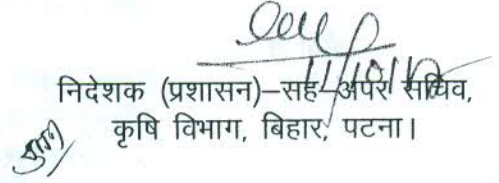 निदेशक (प्रशासन)–सह–अपर सचिव,
कृषि विभाग, बिहार, पटना।